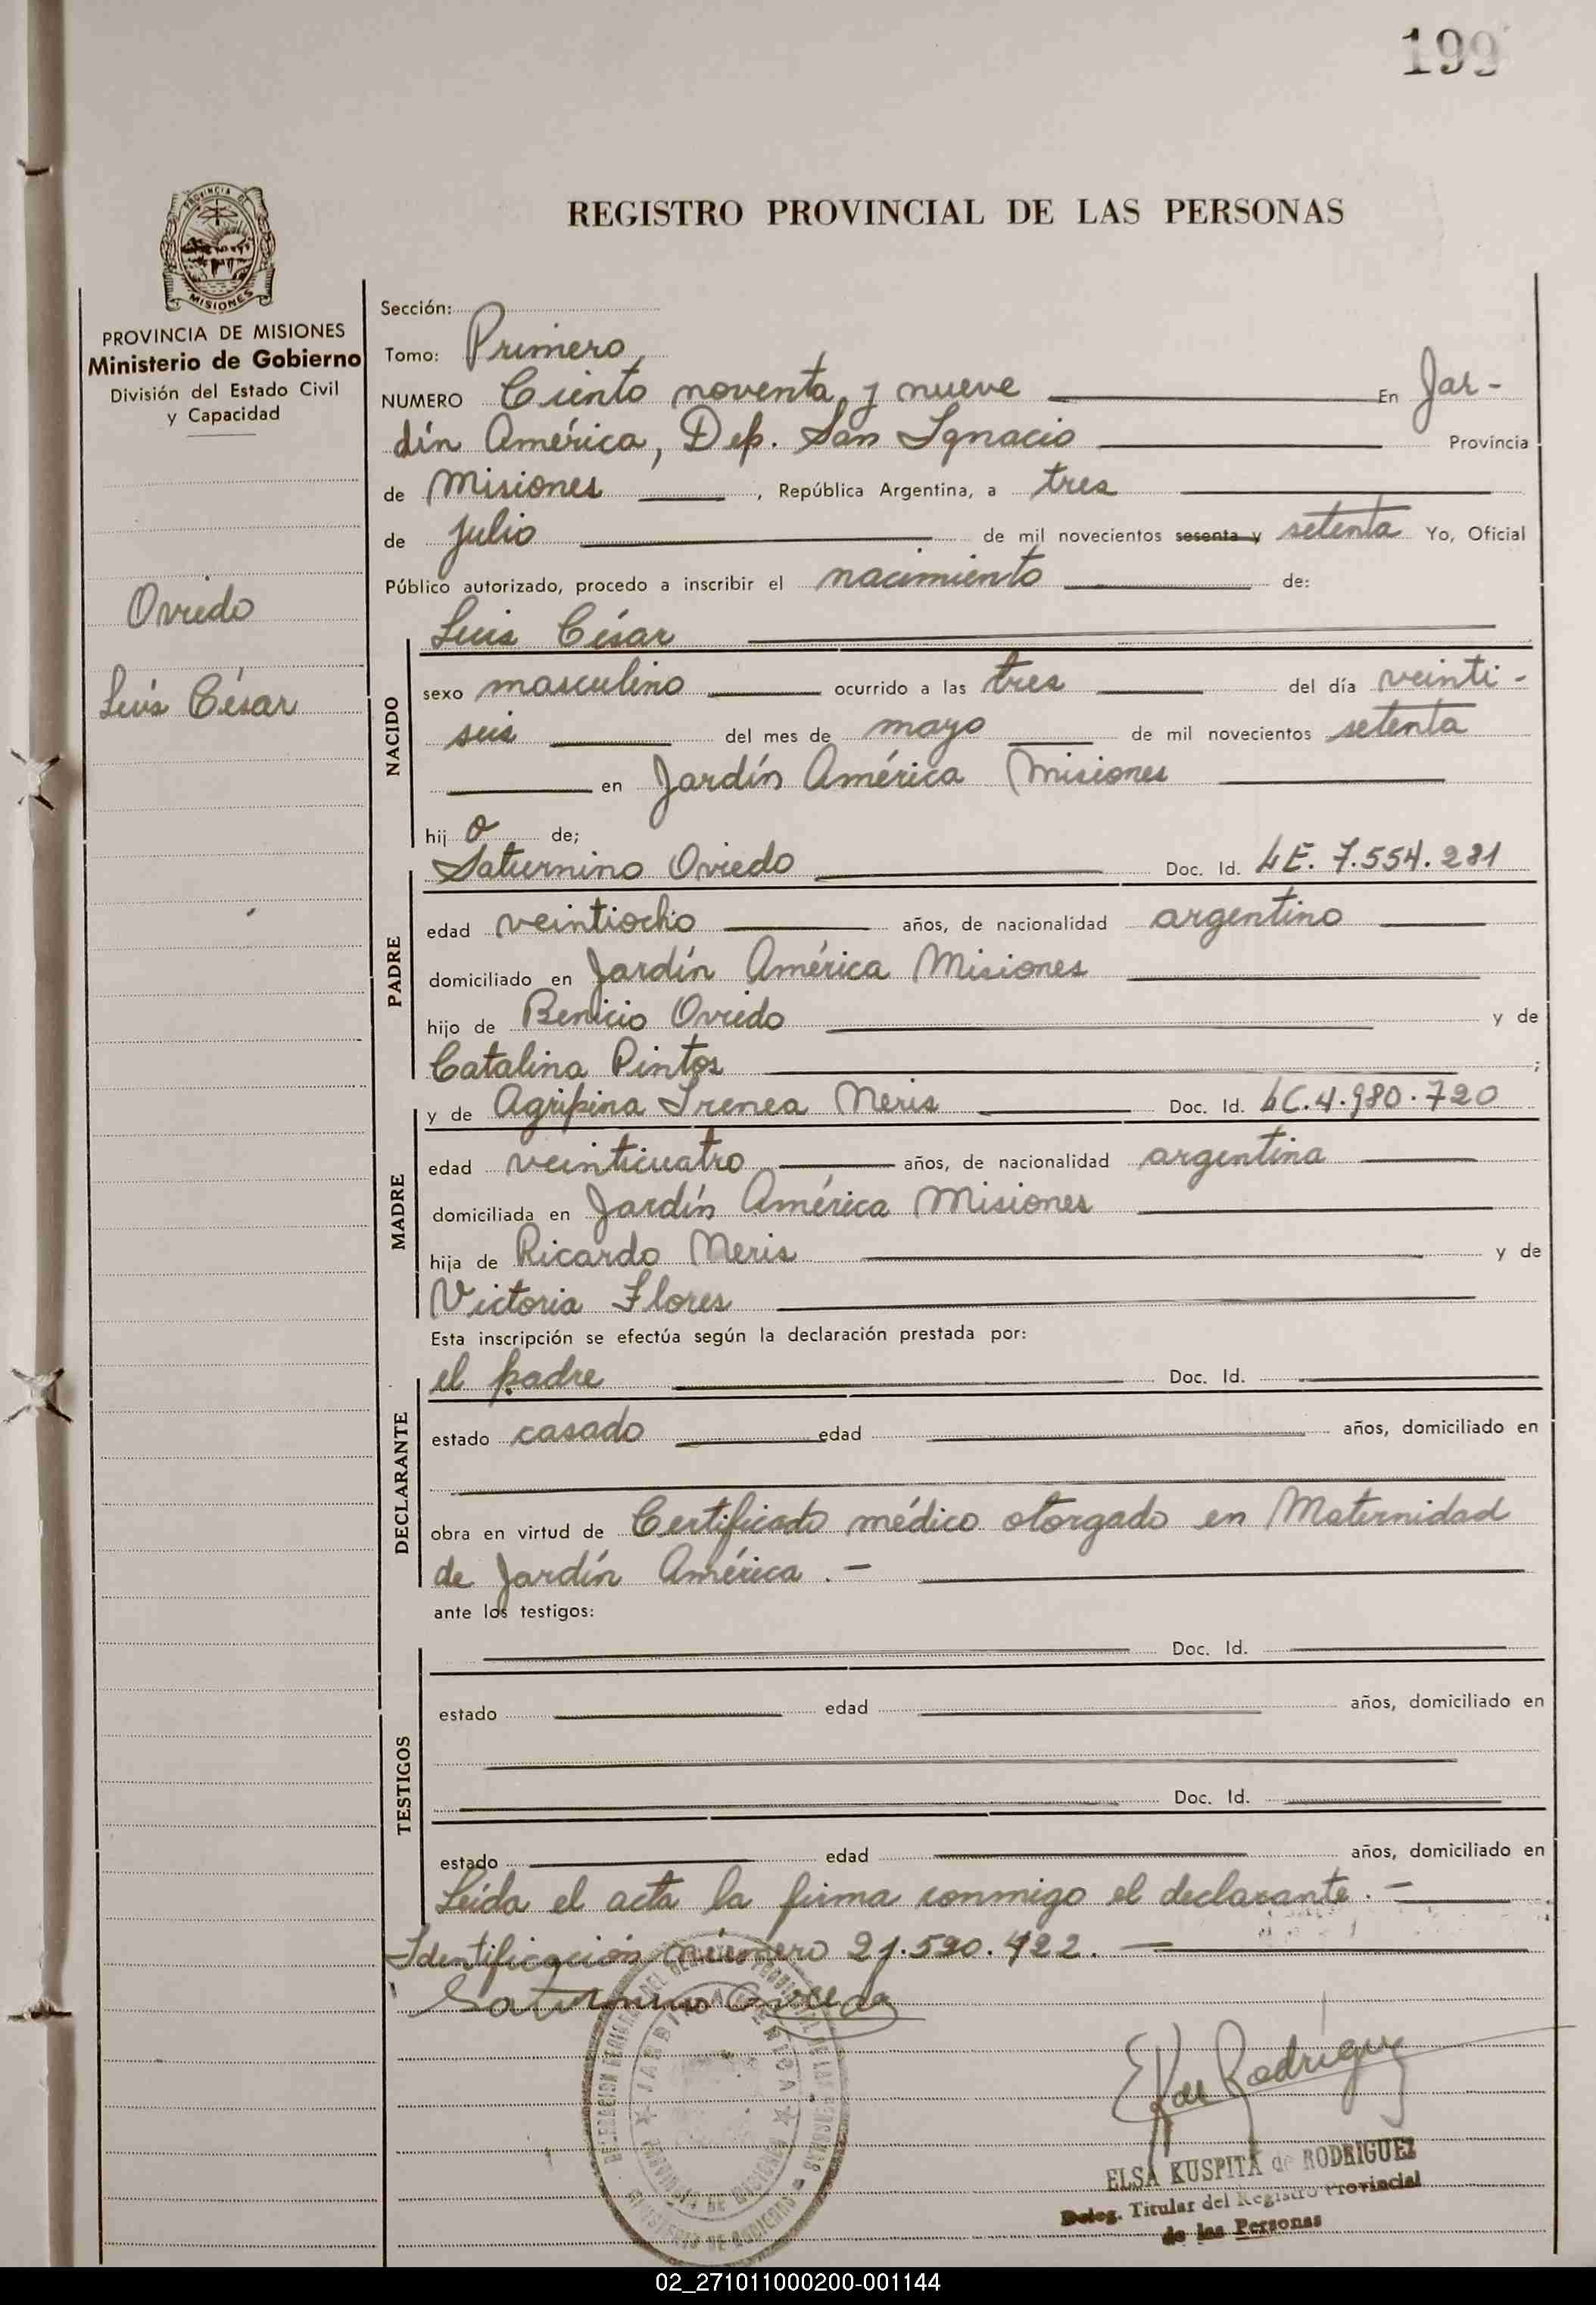 199
REGISTRO PROVINCIAL DE LAS PERSONAS
PROVINCIA DE
MISIONES
PROVINCIA DE MISIONES
Ministerio de Gobierno
División del Estado Civil
y Capacidad
Oviedo
Luis César
Sección:
Tomo: Primero
NUMERO Ciento noventa y nueve En Jar-
dín América, Dep. San Ignacio Provincia
de Misiones, República Argentina, a tres
de julio de mil novecientos sesenta y setenta Yo, Oficial
Público autorizado, procedo a inscribir el nacimiento de:
Luis César
NACIDO
sexo masculino ocurrido a las tres del día veinti-
seis del mes de mayo de mil novecientos setenta
en Jardín América Misiones
hij o de;
Saturnino Oviedo Doc. Id. LE. 7.554.281
PADRE
edad veintiocho años, de nacionalidad argentino
domiciliado en Jardín América Misiones
hijo de Benicio Oviedo y de
Catalina Pintos ;
y de Agripina Irenea Neris Doc. Id. LC. 4.980.720
MADRE
edad veinticuatro años, de nacionalidad argentina
domiciliada en Jardín América Misiones
hija de Ricardo Neris y de
Victoria Flores
Esta inscripción se efectúa según la declaración prestada por:
el padre Doc. Id.
DECLARANTE
estado casado edad años, domiciliado en
obra en virtud de Certificado médico otorgado en Maternidad
de Jardín América.-
ante los testigos:
Doc. Id.
TESTIGOS
estado edad años, domiciliado en
Doc. Id.
estado edad años, domiciliado en
Leída el acta la firma conmigo el declarante.-
Identificación número 21.590.422.-
Saturnino Oviedo
JARDIN AMERICA
PROVINCIA DE MISIONES
MINISTERIO DE GOBIERNO
EK de Rodríguez
ELSA KUSPITA de RODRIGUEZ
Deleg. Titular del Registro Provincial
de las Personas
02_271011000200-001144